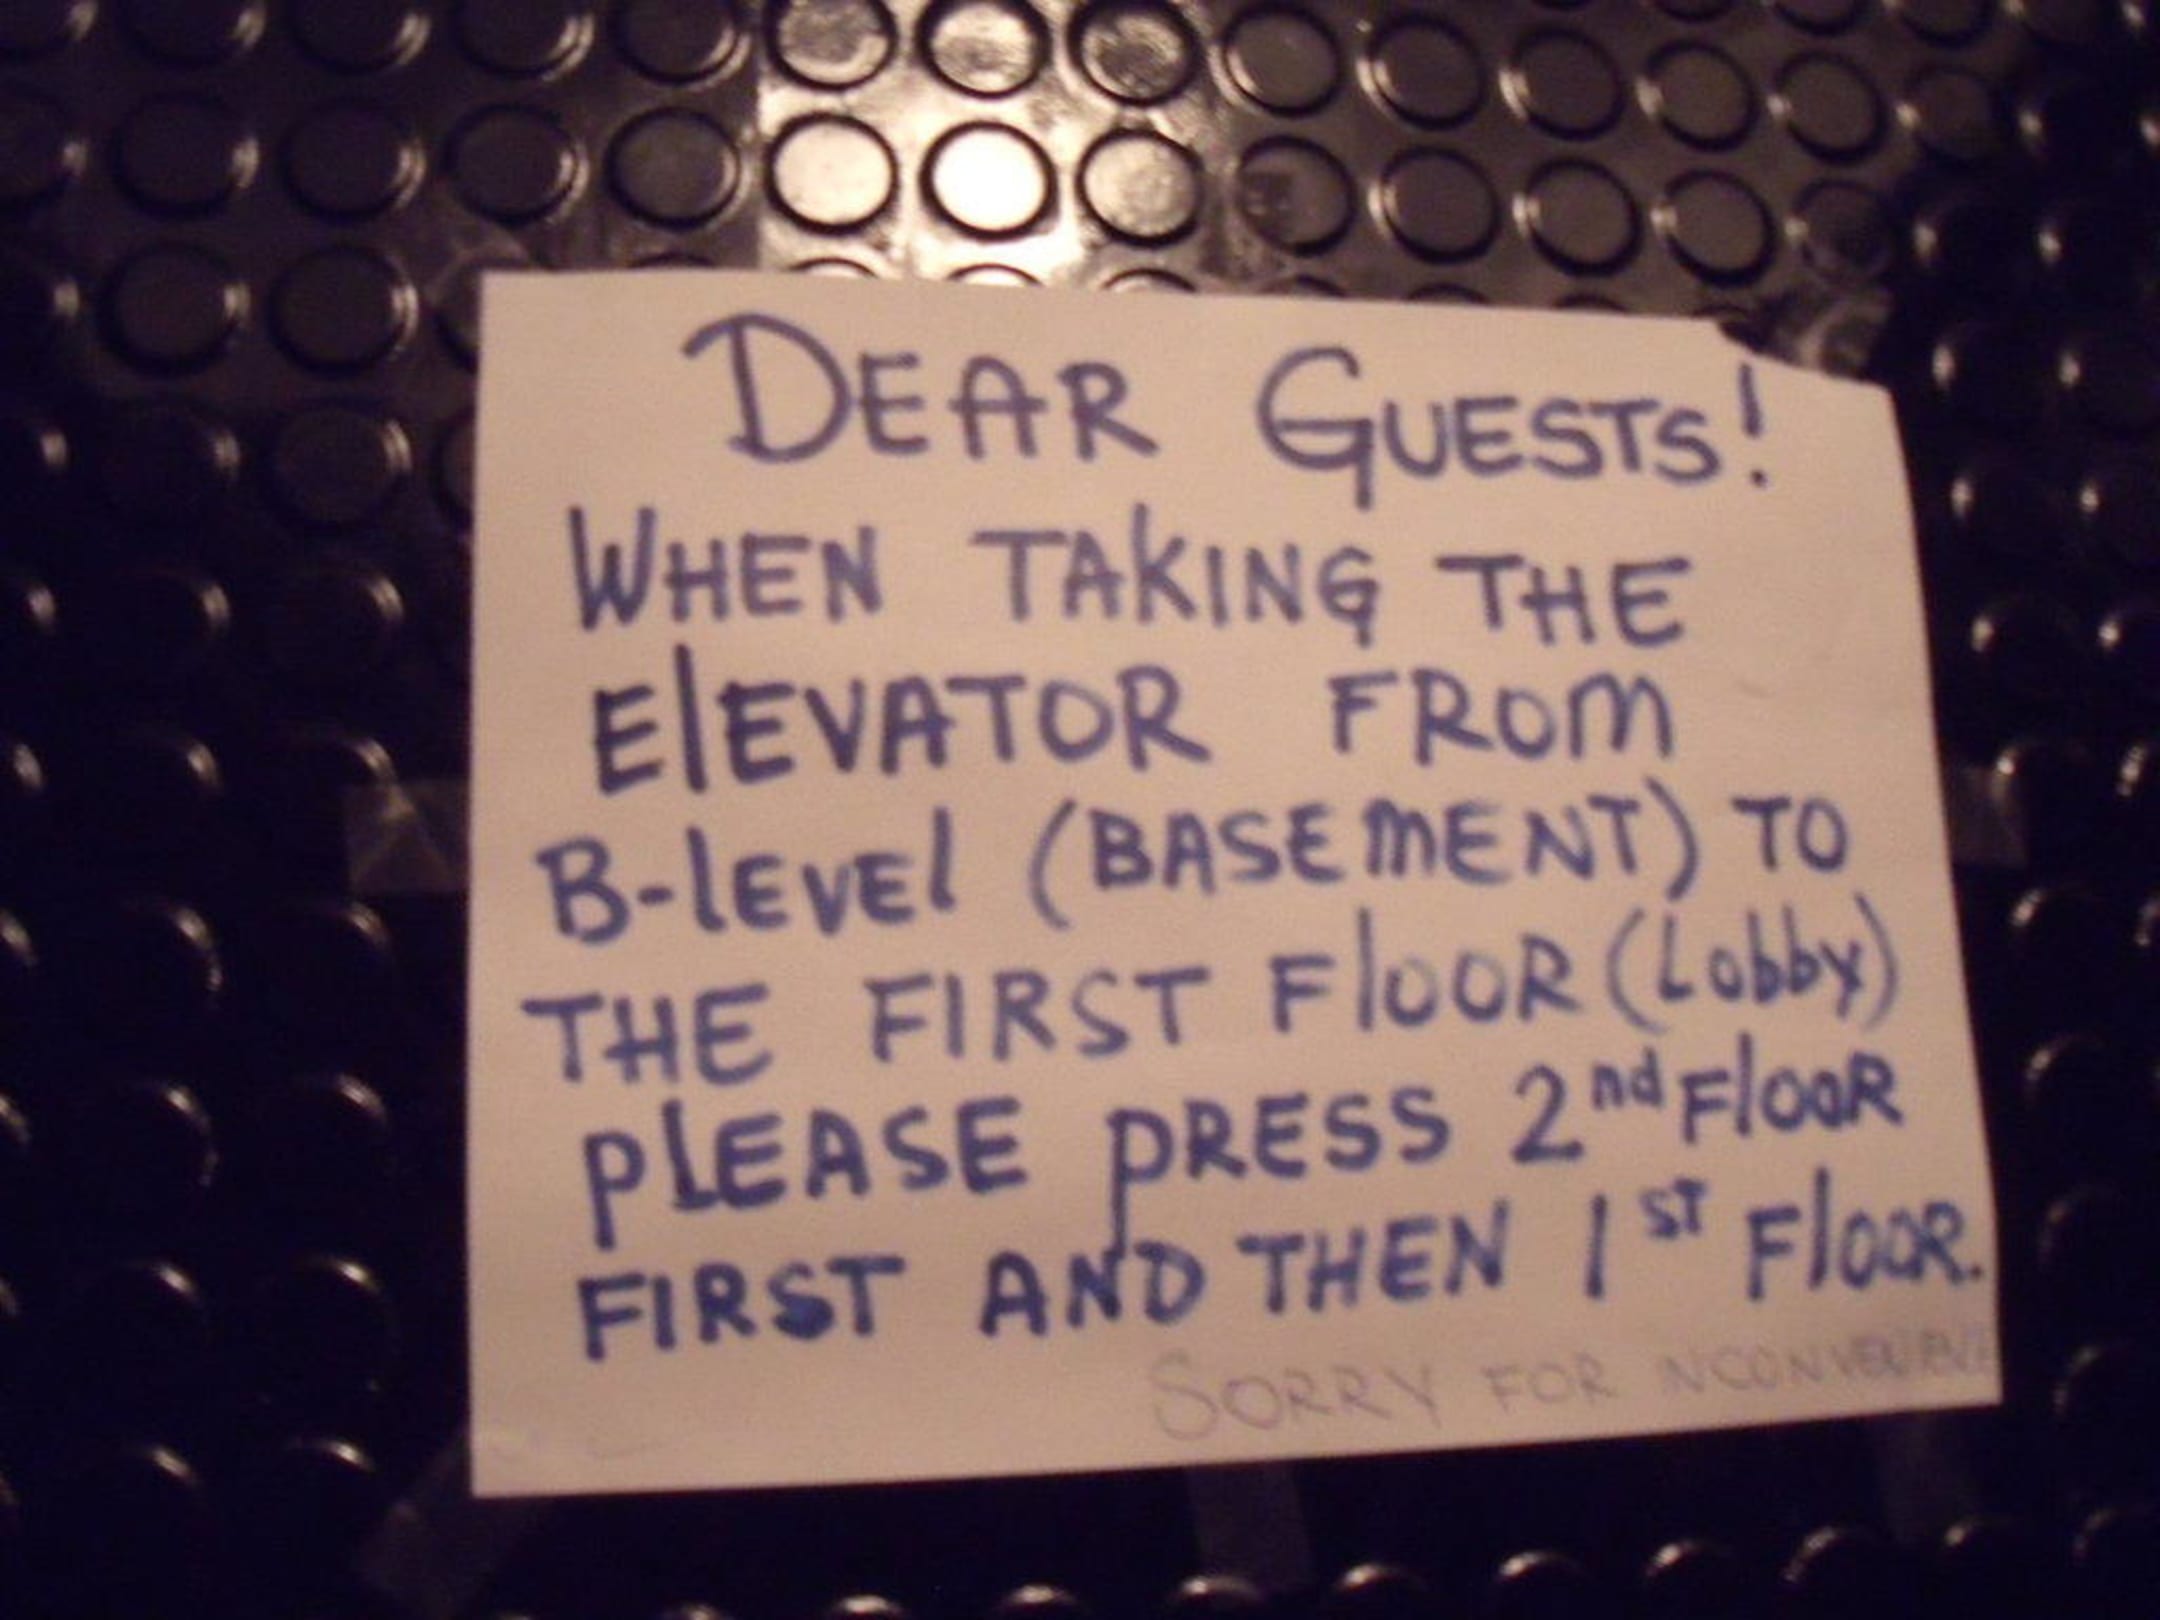 DEAR GUESTS!
WHEN TAKING THE
ElEVATOR FROM
B-lEVEl (BASEMENT) TO
THE FIRST FlOOR (Lobby)
PlEASE PRESS 2nd FlOOR
FIRST AND THEN 1ST FlOOR.
SORRY FOR